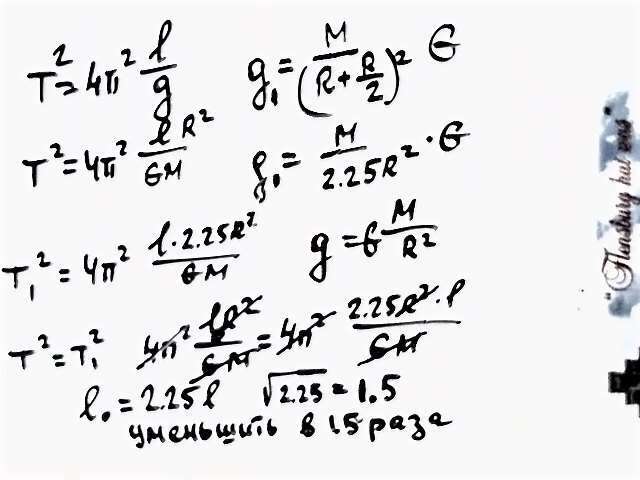 T² = 4π² l/g   g₁ = M/(R + R/2)² G
T² = 4π² lR²/GM   g₁ = M/2.25R² · G
T₁² = 4π² l·2.25R²/GM   g = G M/R²
T² = T₁²   4π² lR²/GM = 4π² 2.25R²·l/GM
l₀ = 2.25l   √2.25 = 1.5
уменьшить в 1.5 раза
"Flensburg